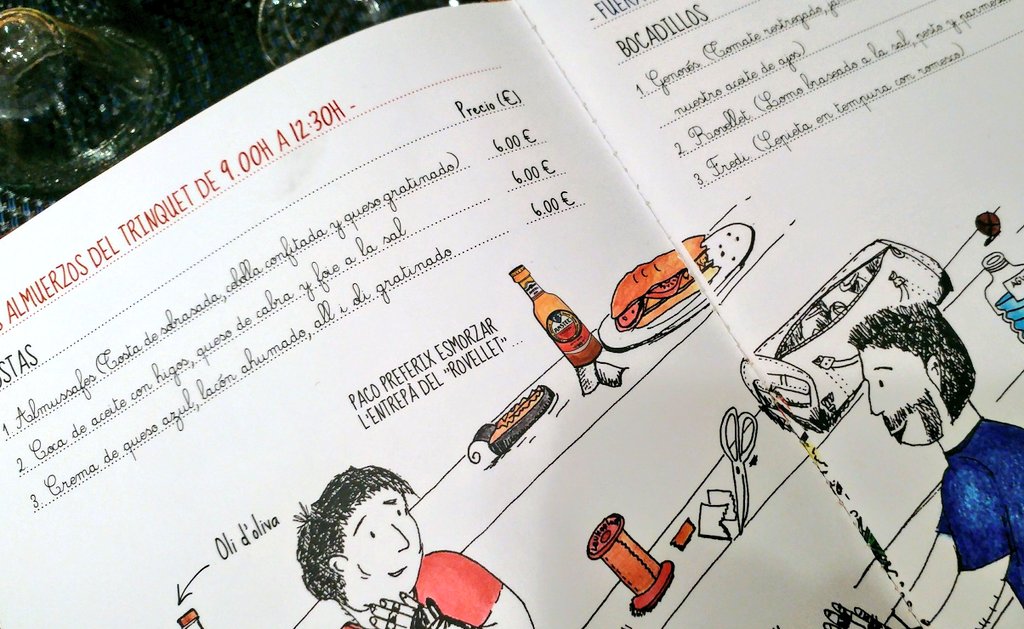 ALMUERZOS DEL TRINQUET DE 9 00H A 12:30H -
Precio (€)
1. Almussafes (Costa de sobrasada, cebolla confitada y queso gratinado) 6.00 €
2. Coca de aceite con higos, queso de cabra y foie a la sal 6.00 €
3. Crema de queso azul, lacón ahumado, all i oli gratinado 6.00 €
PACO PREFERIX ESMORZAR
L'ENTREPÀ DEL "ROVELLET"...
Oli d'oliva
BOCADILLOS
1. Genovés (Tomate restregado,
nuestro aceite de ajos)
2. Rovellet (Lomo braseado a la sal, pesto y
3. Fredi (Sepieta en tempura con romesco)